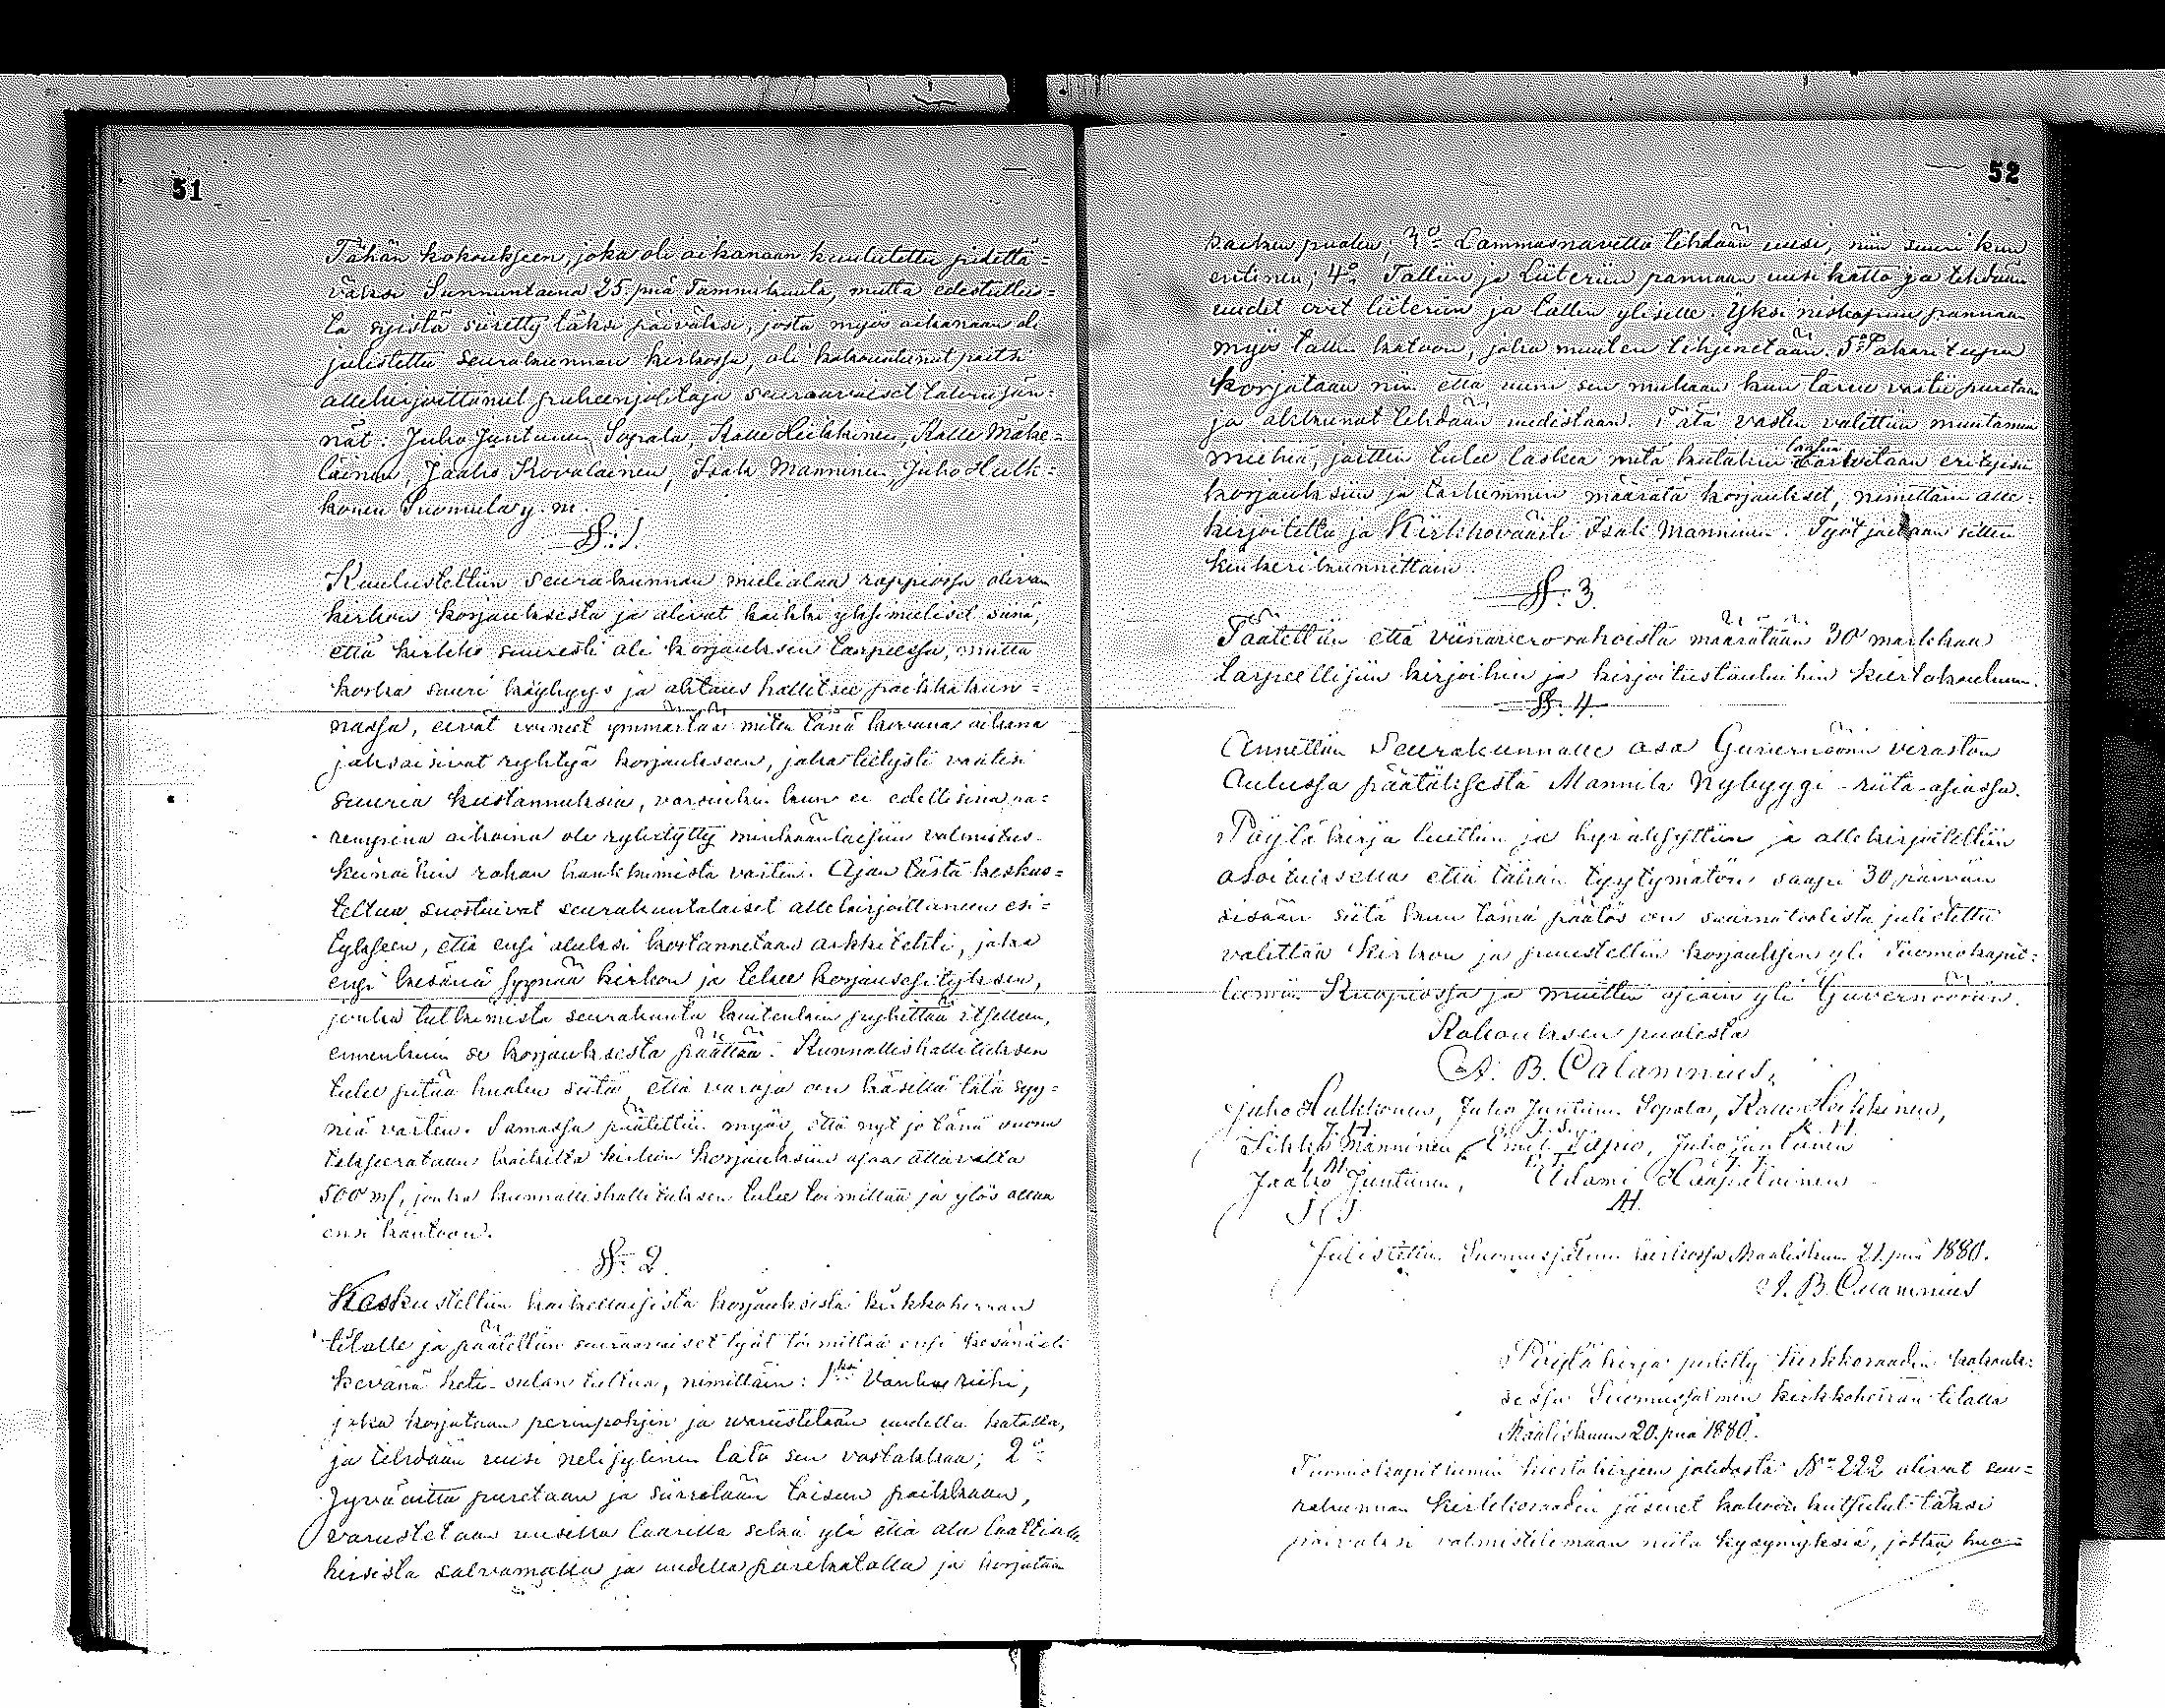 51
Tähän kokoukseen, joka oli aikanaan kuulutettu pidettä=
väksi Sunnuntaina 25 pnä Tammikuuta, mutta edestullei=
ta syistä siiretty täksi päiväksi, josta myös aikanaan oli
julistettu seurakunnan kirkossa, oli kokoontunut paitsi
allekirjoittanut puheenjohtaja seuraavaiset talon isän=
nät: Juho Juntunen Sopala, Kalle Heikkinen, Kalle Mäke=
läinen, Jaako Kovalainen, Isak Manninen, Juho Hulk=
konen Suomula y. m.
§: 1.
Kuulusteltiin seurakunnan mielialaa rappiossa olevan
kirkon korjauksesta ja olivat kaikki yksimieliset siinä,
että kirkko suuresti oli korjauksen tarpeessa, mutta
koska suuri köyhyys ja ahtaus hallitsee paikkakun=
nassa, eivät voineet ymmärtää miten tänä kovana aikana
jaksaisivat ryhtyä korjaukseen, joka tietysti vaatisi
suuria kustannuksia, varsinkin kun ei edellisinä pa=
rempina aikoina ole ryhdytty minkäänlaisiin valmistus-
keinoihin rahan hankkimista varten. Ajan tästä keskus=
teltua suostuivat seurakuntalaiset allekirjoittaneen esi=
tykseen, että ensi aluksi kustannetaan arkkitehti, joka
ensi kesänä syynää kirkon ja tekee korjausesityksen,
jonka tutkimista seurakunta kuitenkin pyhittää itselleen,
ennenkuin se korjauksesta päättää. Kunnallishallituksen
tulee pitää huolen siitä, että varoja on käsillä tätä syy=
niä varten. Samassa päätettiin myös, että nyt jo tänä vuonna
takseerataan kaikilta kirkon korjauksiin apua
500 mf, jonka kunnallishallituksen tulee toimittaa ja ylös ottaa
ensi kantoon.
§: 2.
Keskusteltiin kaikellaisista korjauksista kirkkoherran
tilalla ja päätettiin seuraavaiset työt toimittaa ensi kesänä eli
kevänä heti sulan tultua, nimittäin: 1ksi Vanha riihi,
joka korjataan perinpohjin ja varustetaan uudella katolla,
ja tehdään uusi nelisylinen lato sen vastakkaa; 2o
Jyväaitta puretaan ja siirretään toiseen paikkaan,
varustetaan uusilla laarilla sekä ylä että ala laattialla
hirsistä salvamalla ja uudella pärekatolla ja korjataan
52
kaiken puolen; 3o Lammasnavetta tehdään uusi, niin suuri kun
entinen; 4o Talliin ja Liiteriin pannaan uusi katto ja tehdään
uudet ovet liiteriin ja tallin yliselle. Yksi niskapuu pannaan
myös tallin katoon, joka muuten tihjenetään. 5o Pakari tupa
korjataan niin että uuni sen mukaan kun tarve vaatii puretaan
ja akkunat tehdään uudistaan. Tätä vasten valittiin muutamia
miehiä, joitten tulee laskea mitä kutakin tarvitaan erityisiin
korjauksiin ja tarkemmin määrätä korjaukset, nimittäin alle=
kirjoitettu ja Kirkkoväärti Isak Manninen. Työt jaetaan sitten
kinkerikunnittain.
§: 3.
Päätettiin että viinaverorahoista määrätään 30 markkaa
tarpeellisiin kirjoihin ja kirjoitustauluihin kiertokouluun.
§: 4.
Annettiin Seurakunnalle osa Guvernöörin viraston
Oulussa päätöksestä Mannila Nybyggi-riita-asiassa.
Pöytäkirja luettiin ja hyväksyttiin ja allekirjoitettiin
osoituksella että tähän tyytymätön saapi 30 päivän
sisään siitä kuin tämä päätös on saarnatuolista julistettu
valittaa kirkon ja puustellin korjauksien yli Tuomiokapit=
lumiin Kuopiossa ja muitten asiain yli Guvernööriin.
Kokouksen puolesta
A. B. Calamnius,
Juho Hulkkonen, Juho Juntunen Sopala, Kalle Heikkinen,
J. H. J. J. S. K. H.
Manninen, Emil Tapio, Juho Juntunen
E. T. J. J.
Jaakko Juntunen, Adami Haapalainen
J. J. A. H.
Julistettu Suomusjalmen kirkossa Maaliskuun 21. pnä 1880.
A. B. Calamnius
Pöytäkirja pidetty kirkkoraadin kokouk=
sessa Suomussalmen kirkkoherran tilalla
Maaliskuun 20. pnä 1880.
Tuomiokapitlumin kiertokirjeen johdosta No 222 olivat seu=
rakunnan kirkkoraadin jäsenet kokoon kutsutut täksi
päiväksi valmistelemaan niitä kysymyksiä, jotka